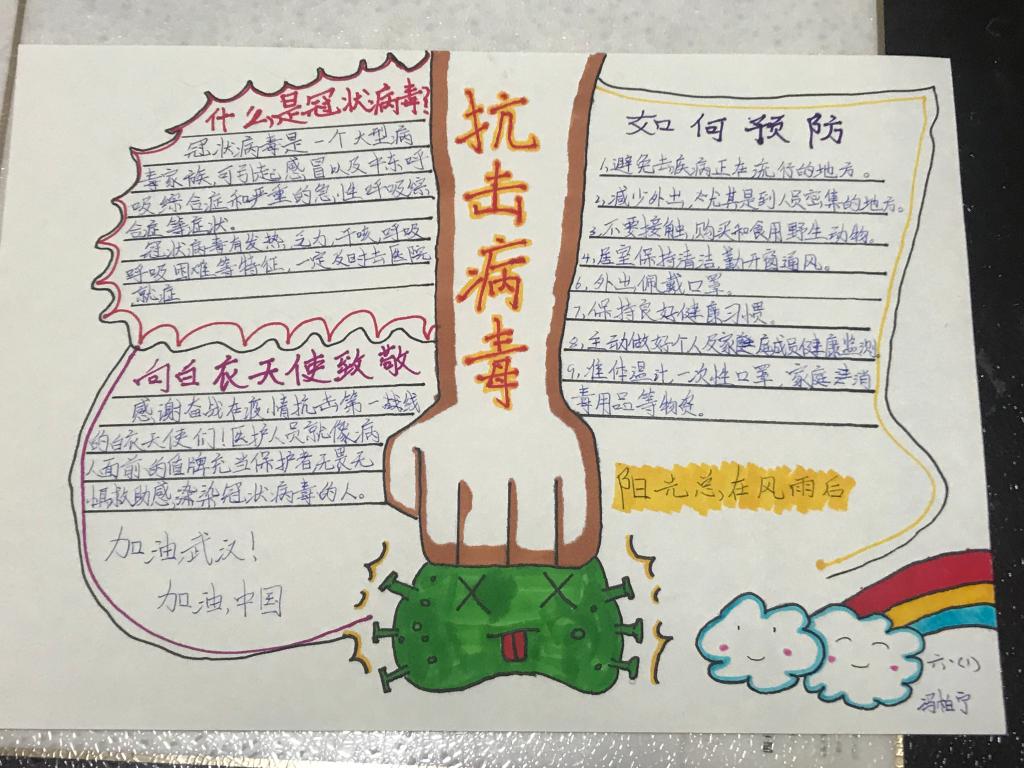 什么是冠状病毒?
冠状病毒是一个大型病
毒家族,可引起感冒以及中东呼
吸综合症和严重的急性呼吸综
合症等症状。
冠状病毒有发热、乏力、干咳、呼吸
呼吸困难等特征,一定及时去医院
就症
向白衣天使致敬
感谢奋战在疫情抗击第一战线
的白衣天使们!医护人员就像病
人面前的盾牌充当保护者无畏无
惧救助感染染冠状病毒的人。
加油武汉!
加油,中国
抗击病毒
如何预防
1,避免去疾病正在流行的地方。
2,减少外出,尤其是到人员密集的地方。
3,不要接触,购买和食用野生动物。
4,居室保持清洁,勤开窗通风。
6,外出佩戴口罩。
7,保持良好健康习惯。
8,主动做好个人及家庭庭成员健康监测
9,准体温计,一次性口罩,家庭消
毒用品等物资。
阳光总,在风雨后
六(1)
冯柏宁